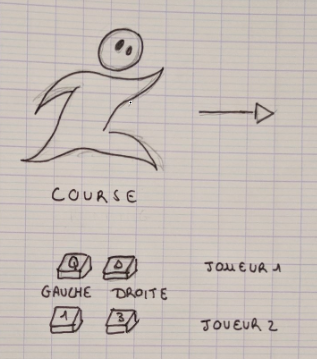 COURSE
Q D JOUEUR 1
GAUCHE DROITE
1 3 JOUEUR 2